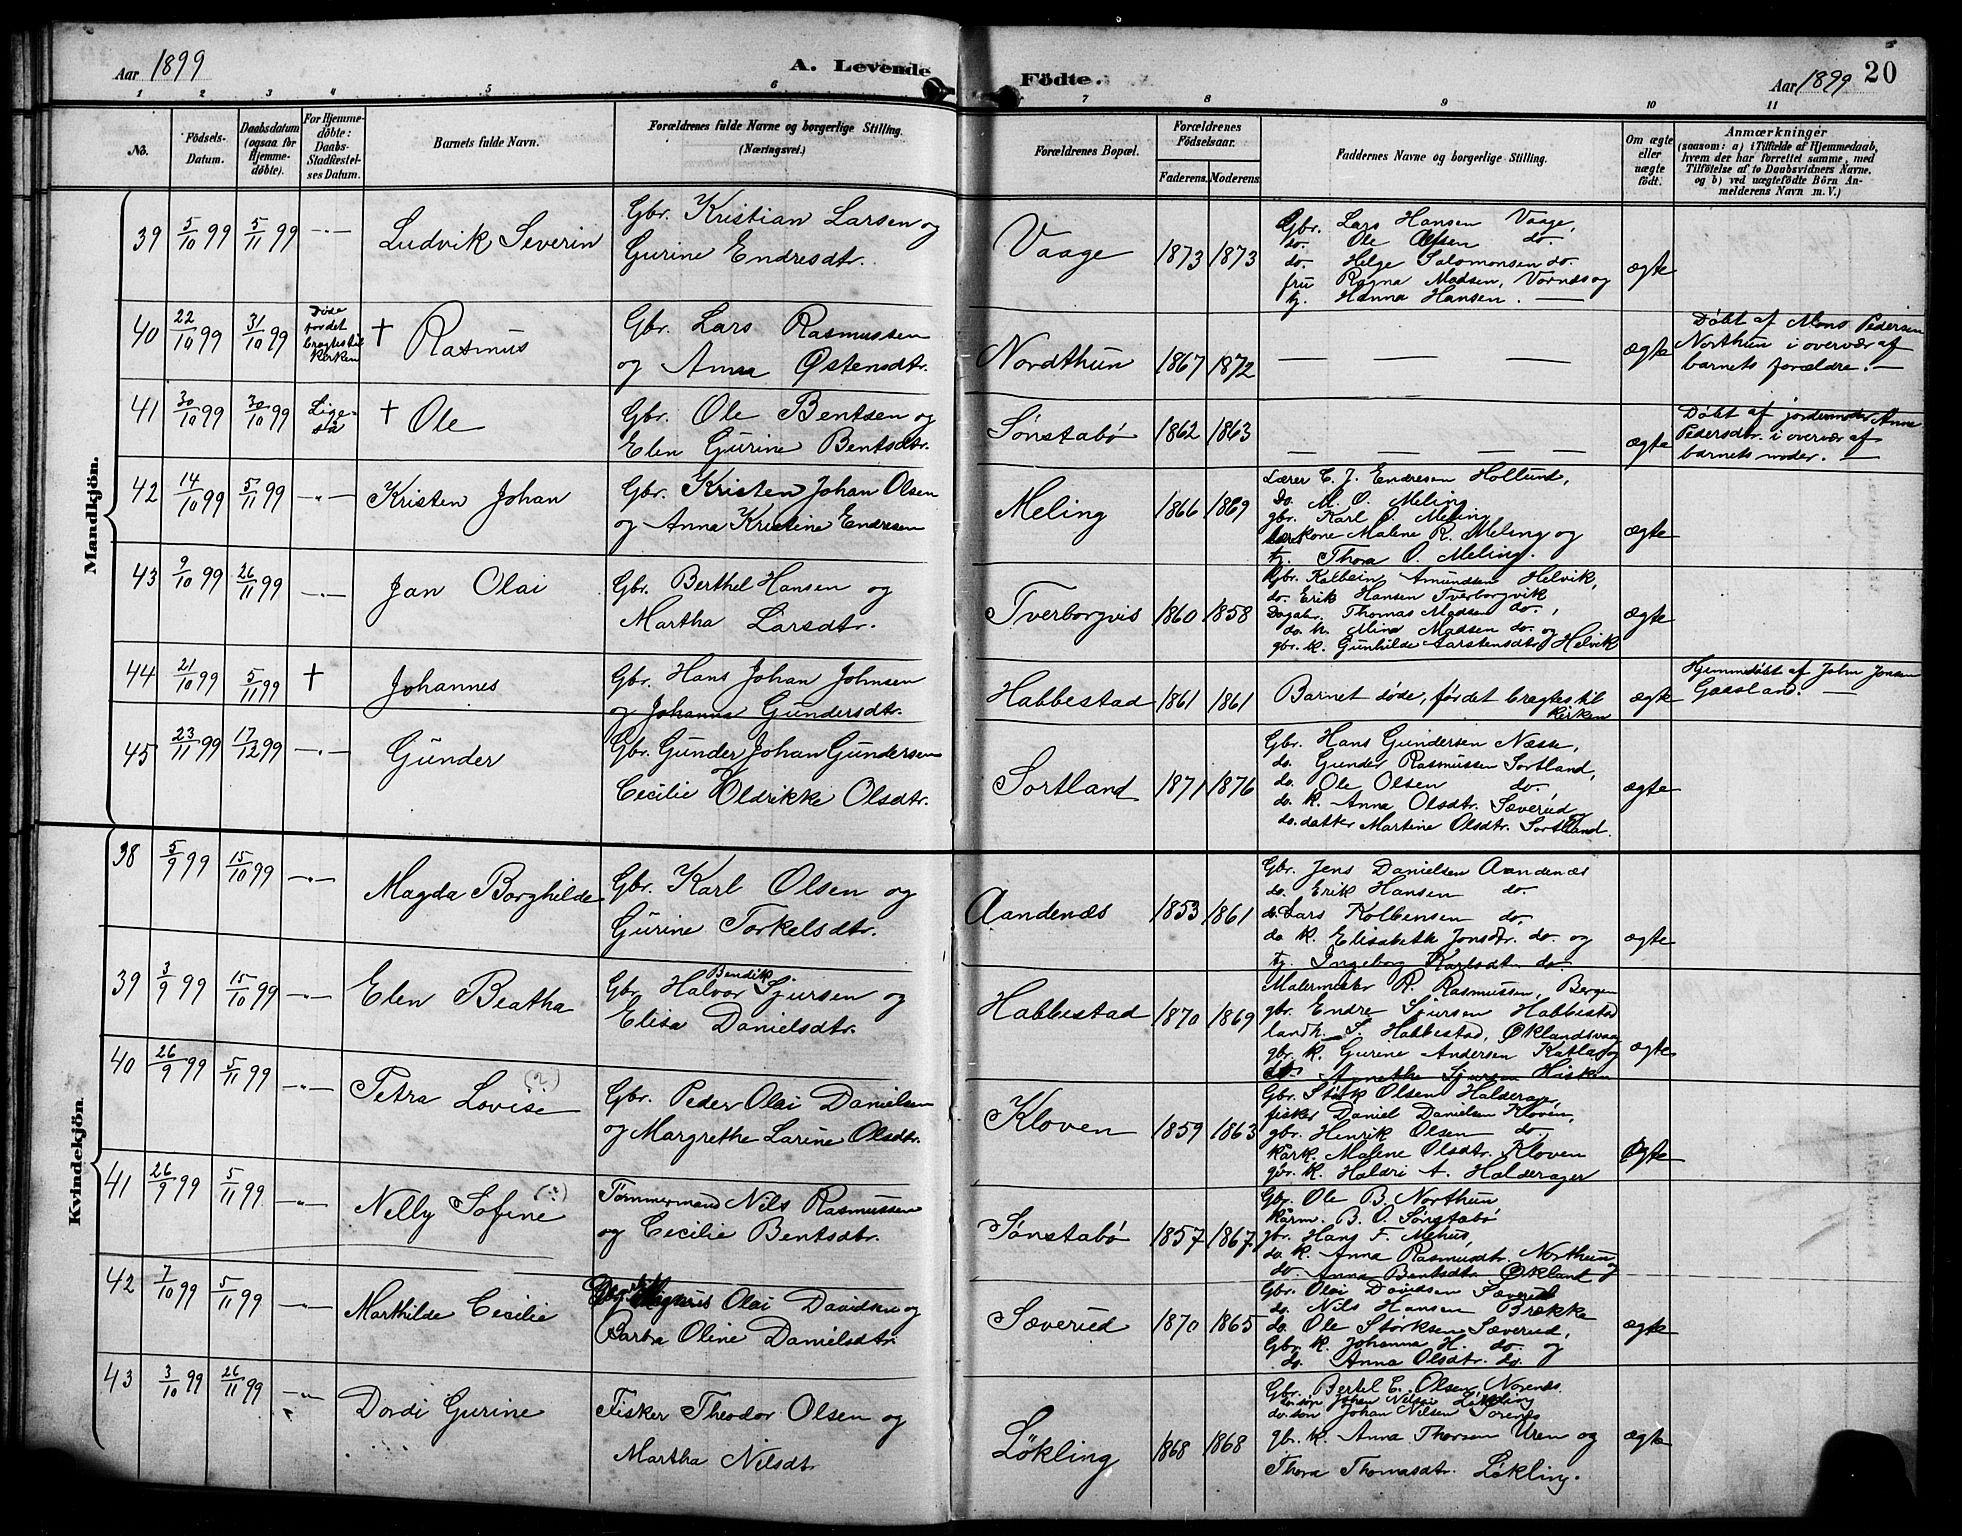 Aar 1899
A. Levende
Födte.
Aar 1899
20
1 2 3 4 5 6 7 8 9 10 11
No.
Födsels-
Datum.
Daabsdatum
(ogsaa for
Hjemme-
døbte).
For Hjemme-
døbte:
Daabs-
Stadfæstel-
ses Datum.
Barnets fulde Navn.
Forældrenes fulde Navne og borgerlige Stilling.
(Næringsvei.)
Forældrenes Bopæl.
Forældrenes
Födselsaar.
Faderens. Moderens.
Faddernes Navne og borgerlige Stilling.
Om ægte
eller
uægte
født.
Anmærkninger
(saasom: a) i Tilfælde af Hjemmedaab,
hvem der har forrettet samme, med
Tilföielse af to Daabsvidners Navne.
og b) ved uægtefödte Börn An-
melderens Navn m. V.)
Mandkjön.
39 5/10 99 5/11 99 -"- Ludvik Severin
Gbr. Kristian Larsen og
Gurine Endresdtr.
Vaage 1873 1873
Gbr. Lars Hansen Vaage,
do. Ole Olsen do.
do. Helge Salomonsen do.
fru Ragna Madsen, Vornes og
tj. Hanna Hansen. —
ægte
40 22/10 99 31/10 99
Døde
før det
bragtes til
kirken
+ Rasmus
Gbr. Lars Rasmussen
og Anna Østensdtr.
Nordthun 1867 1872
— — — —
ægte
Døbt af Mons Pedersen
Northun i overvær af
barnets forældre. —
41 30/10 99 30/10 99
Lige-
så
+ Ole
Gbr. Ole Bentsen og
Elen Gurine Bentsdtr.
Sønstabø 1862 1863
— — — —
ægte
Døbt af jordemoder Anna
Pedersdtr. i overvær af
barnets moder. —
42 14/10 99 5/11 99 -"- Kristen Johan
Gbr. Kristen Johan Olsen
og Anna Kristine Endresen
Meling 1866 1869
Lærer E. J. Endresen Hollund,
Do. M. O. Meling
gbr. Karl O. Meling
kone Malene R. Meling og
tj. Thora O. Meling.
ægte
43 9/10 99 26/11 99 -"- Jan Olai
Gbr. Berthel Hansen og
Martha Larsdtr.
Tverborgvis 1860 1858
Gbr. Kolbein Amundsen Helvik,
do. Erik Hansen Tverborgvik
Dagab. Thomas Madsen do.,
do. k. Mina Madsen do. og
gbr. k. Gunhilde Karstensdtr. Helvik
ægte
44 21/10 99 5/11 99 + Johannes
Gbr. Hans Johan Johnsen
og Johanna Gundersdtr.
Habbestad 1861 1861
Barnet døde, før det bragtes til
kirken
ægte
Hjemmdøbt af John Jonsen
Gaasland. —
45 23/11 99 17/12 99 -"- Gunder
Gbr. Gunder Johan Gundersen
Cecilie Oldrikke Olsdtr.
Sortland 1871 1876
Gbr. Hans Gundersen Næsse,
do. Gunder Rasmussen Sortland,
do. Ole Olsen do.
do. k. Anna Olsdtr. Sæverud og
do. datter Martine Olsdtr. Sortland.
ægte
Kvindekjön.
38 5/9 99 15/10 99 -"- Magda Borghilde
Gbr. Karl Olsen og
Gurine Torkelsdtr.
Aandenæs 1853 1861
Gbr. Jens Danielsen Aandenæs
do. Erik Hansen do.
do. Lars Kolbensen do.
do k. Elisabeth Jonsdtr. do. og
tj. Ingeborg Karlsdtr do.
ægte
39 3/9 99 15/10 99 -"- Elen Beatha
Bendik
Gbr Halvor Sjursen og
Elisa Danielsdtr.
Habbestad 1870 1869
Malermester R. Rasmussen, Bergen
gbr. Endre Sjursen Habbestad
landh. S. Habbestad, Øklandsvaag
gbr. k. Gurine Andersen Katla og
do Agnethe Sjursen Hisken
ægte
40 26/9 99 5/11 99 -"- Petra Lovise (?)
Gbr. Peder Olai Danielsen
og Margrethe Larine Olsdtr.
Kloven 1859 1863
Gbr. Størk Olsen Halderager,
fisker Daniel Danielsen Kloven,
gbr. Henrik Olsen do.
kårk. Malene Olsdtr. Kloven
gbr. k. Haldri A. Halderager
Ægte
41 26/9 99 5/11 99 -"- Nelly Sofine (?)
Tømmermand Nils Rasmussen
og Cecilie Bentsdtr.
Sønstabø 1857 1867
Gbr. Ole B. Northun
kårm. B. O. Sønstabø
gbr. Hans F. Mehus,
do. k. Anna Rasmusdtr. Northun og
do. Anna Bentsdtr. Økland
42 7/10 99 5/11 99 -"- Marthilde Cecilie
Olai Davidsen og
Barba Oline Danielsdtr.
Sæverud 1870 1865
Gbr. Olai Davidsen Sæverud
do. Nils Hansen Brække
do. Ole Størksen Sæverud,
Gbr. k. Johanna H. do og
do. Anna Olsdtr. do.
ægte
43 3/10 99 26/11 99 -"- Dordi Gurine
Fisker Theodor Olsen og
Martha Nilsdt.
Løkling 1868 1868
Gbr. Bertel E. Olsen, Norends
do. søn Johan Nilsen Løkling
do. søn Johan Nilsen Sorends
gbr. k. Anna Thorsen Uren og
Thora Thomasdtr. Løkling.
ægte